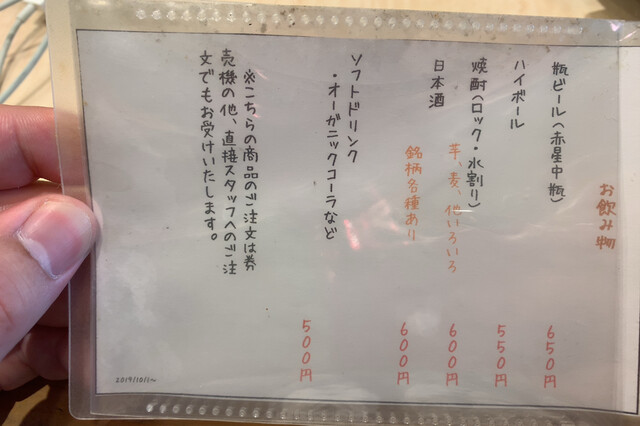 お飲み物
瓶ビール(赤星中瓶)
650円
ハイボール
550円
焼酎(ロック・水割り)
芋、麦、他いろいろ
600円
日本酒
銘柄各種あり
600円
ソフトドリンク
・オーガニックコーラなど
500円
※こちらの商品のご注文は券
売機の他、直接スタッフへのご注
文でもお受けいたします。
2019/10/1〜